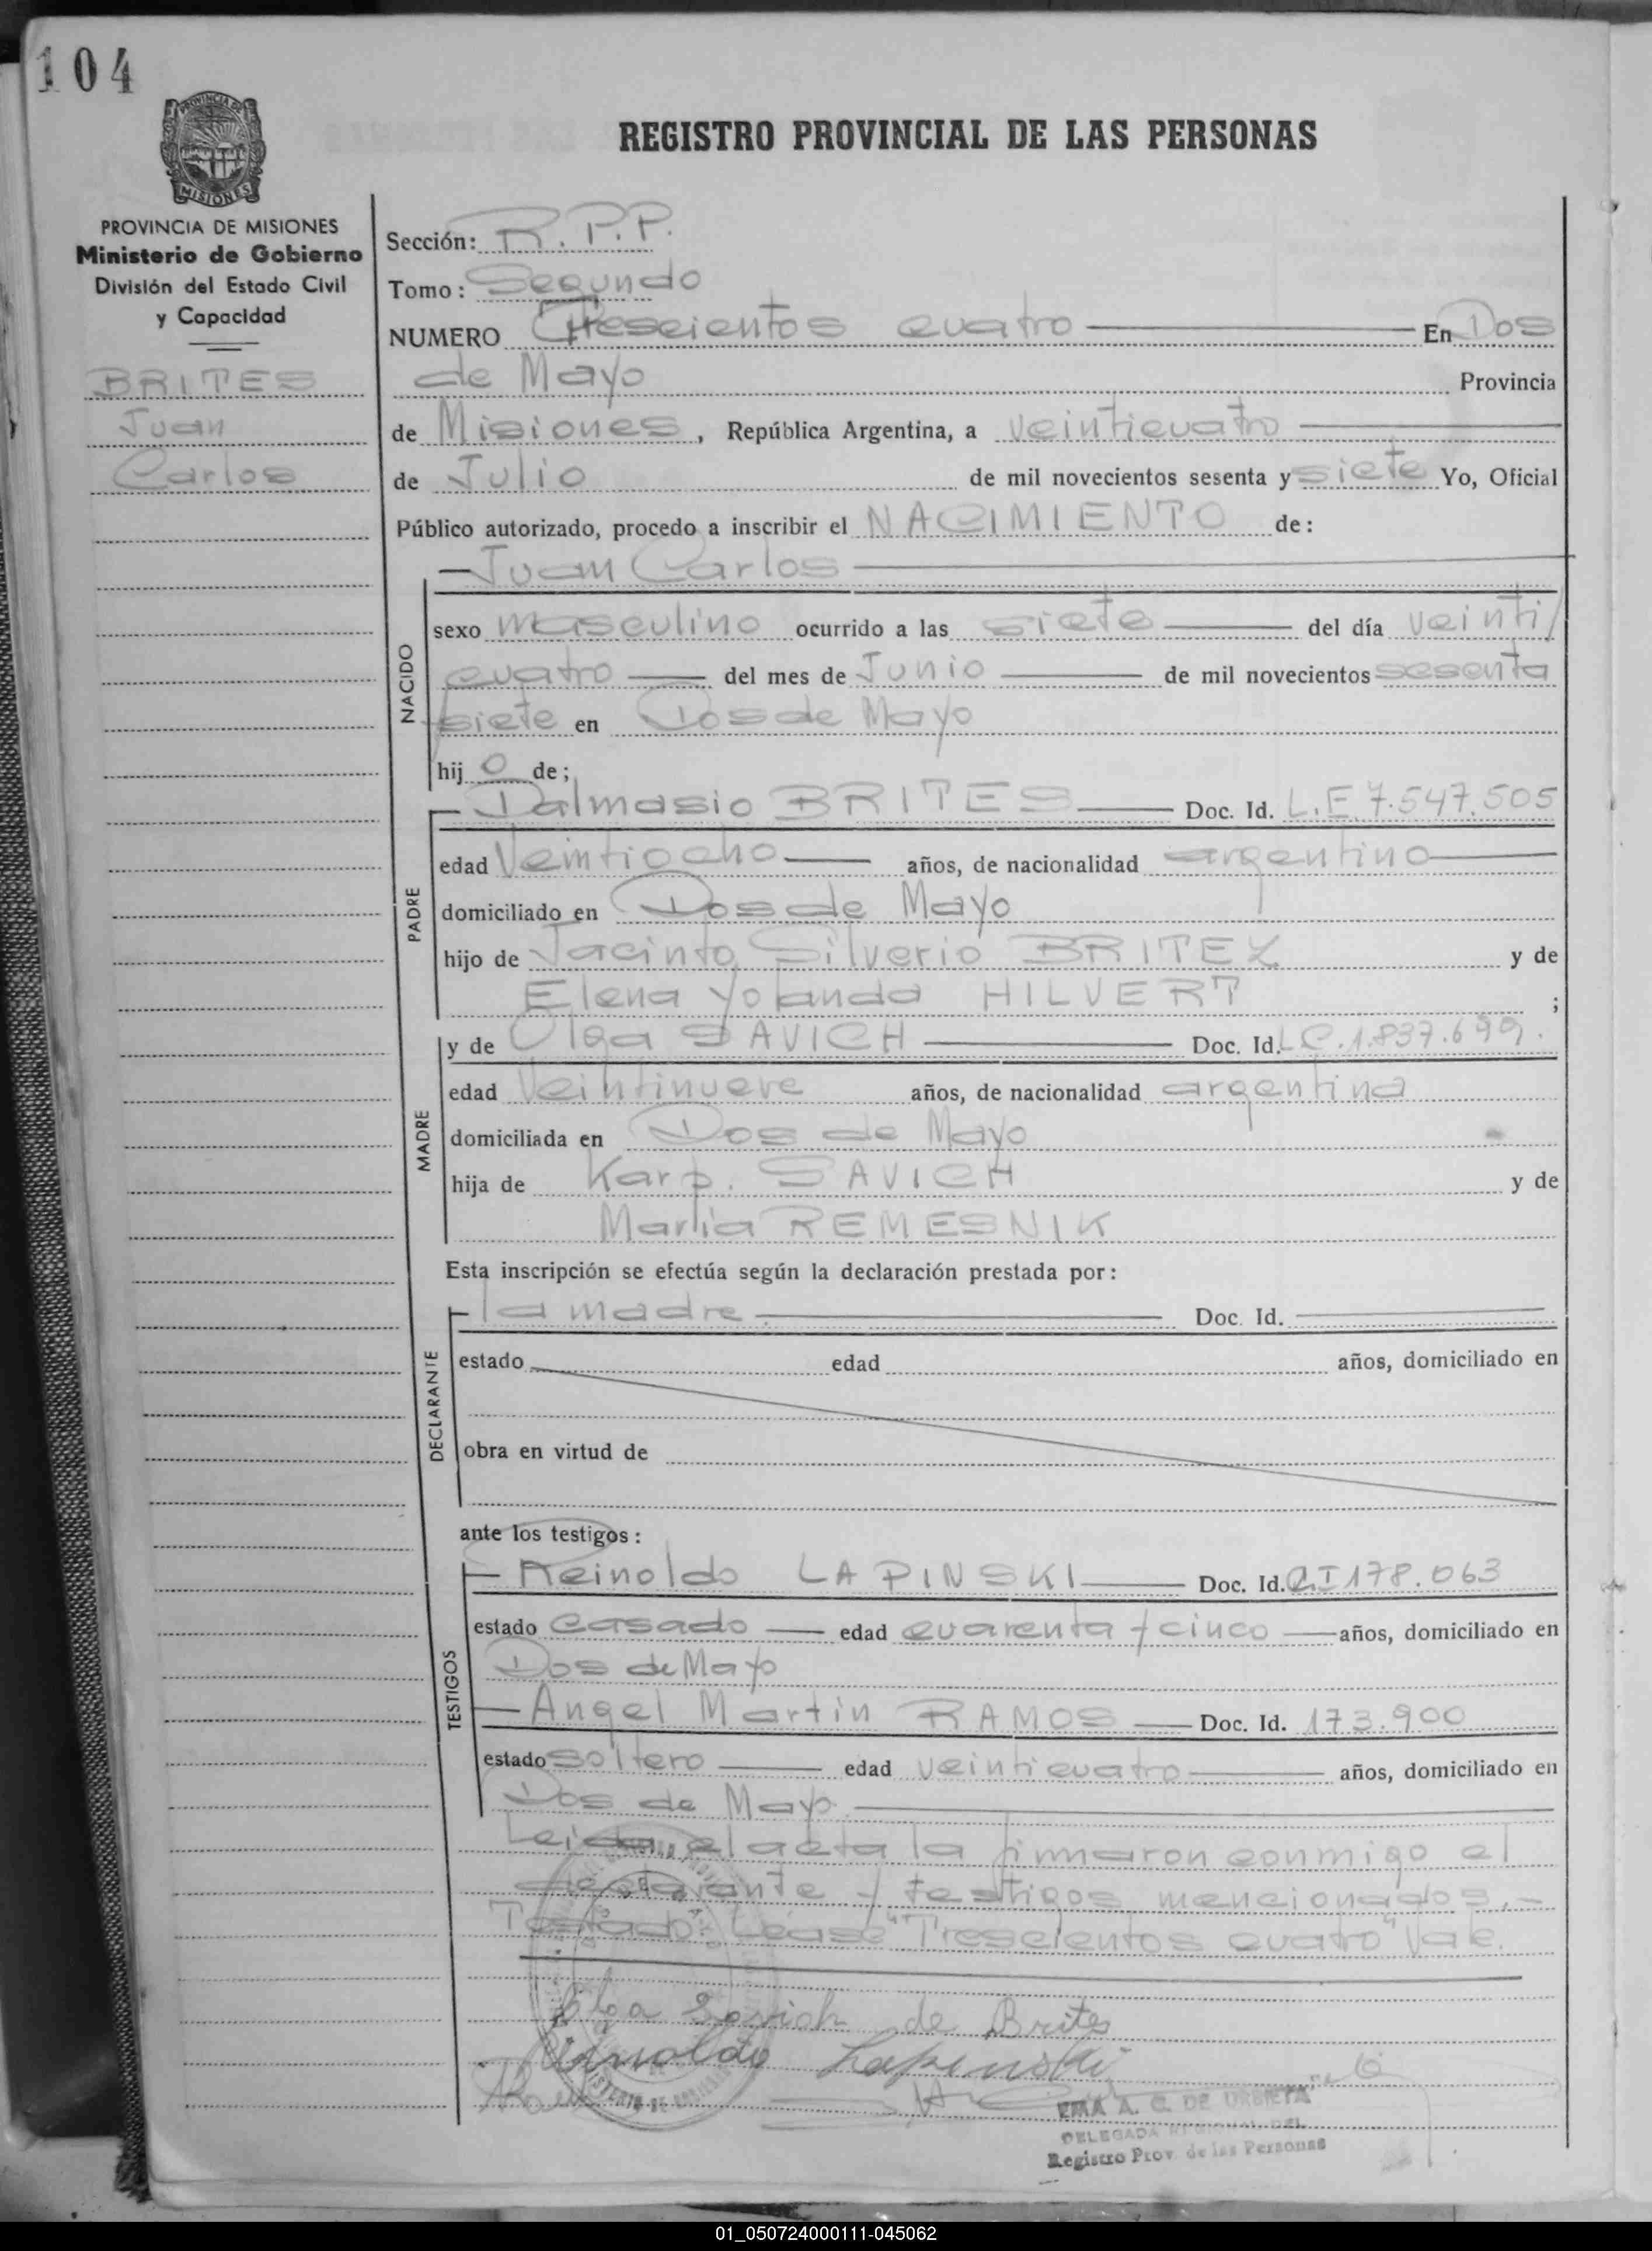 104
PROVINCIA DE
MISIONES
REGISTRO PROVINCIAL DE LAS PERSONAS
PROVINCIA DE MISIONES
Ministerio de Gobierno
División del Estado Civil
y Capacidad
BRITES
Juan
Carlos
Sección: R.P.P.
Tomo: Segundo
NUMERO Trescientos cuatro En Dos
de Mayo Provincia
de Misiones, República Argentina, a veinticuatro
de Julio de mil novecientos sesenta y siete Yo, Oficial
Público autorizado, procedo a inscribir el NACIMIENTO de:
NACIDO
Juan Carlos
sexo masculino ocurrido a las siete del día veinti/
cuatro del mes de Junio de mil novecientos sesenta
/siete en Dos de Mayo
hij o de;
PADRE
Dalmasio BRITES Doc. Id. L.E 7.547.505
edad Veintiocho años, de nacionalidad argentino
domiciliado en Dos de Mayo
hijo de Jacinto Silverio BRITEZ y de
Elena Yolanda HILVERT ;
MADRE
y de Olga SAVICH Doc. Id. L.C.1.837.699.
edad Veintinueve años, de nacionalidad argentina
domiciliada en Dos de Mayo
hija de Karp. SAVICH y de
María REMESNIK
Esta inscripción se efectúa según la declaración prestada por:
DECLARANTE
la madre Doc. Id.
estado edad años, domiciliado en
obra en virtud de
ante los testigos:
TESTIGOS
Reinoldo LAPINSKI Doc. Id. C.I 178.063
estado Casado edad cuarenta y cinco años, domiciliado en
Dos de Mayo
Angel Martín RAMOS Doc. Id. 173.900
estado soltero edad veinticuatro años, domiciliado en
Dos de Mayo.
Leida el acta la firmaron conmigo el
declarante y testigos mencionados.-
Testado: Léase "Trescientos cuatro" Vale.
Olga Savich de Brites
Reinoldo Lapinski
EMA A. C. DE URBIETA
DELEGADA REGIONAL DEL
Registro Prov. de las Personas
01_050724000111-045062